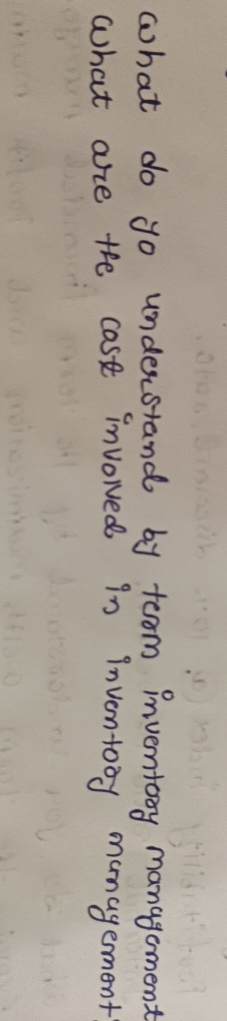 what do yo understand by term inventory mangement
what are the cast involved in inventory mungement